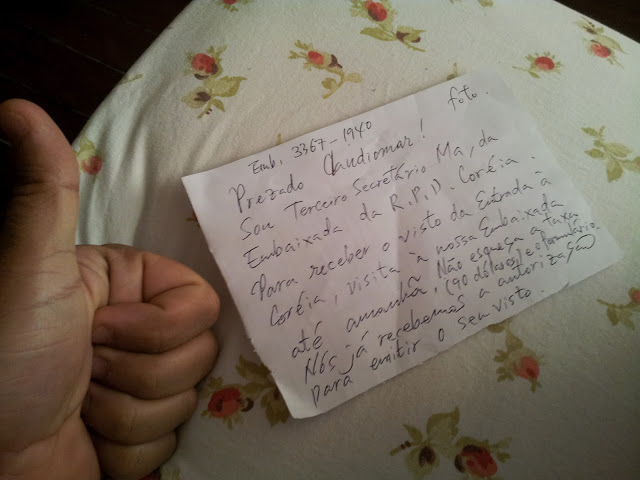 foto.
Emb. 3367-1940
Prezado Claudiomar!
Sou Terceiro Secretário Ma, da
Embaixada da R.P.D. Coréia.
Para receber o visto da Entrada à
Coréia, visita a nossa Embaixada
até amanhã. Não esqueça a taxa
(90 dólares) e o formulário.
Nós já recebemos a autorização
para emitir o seu visto.